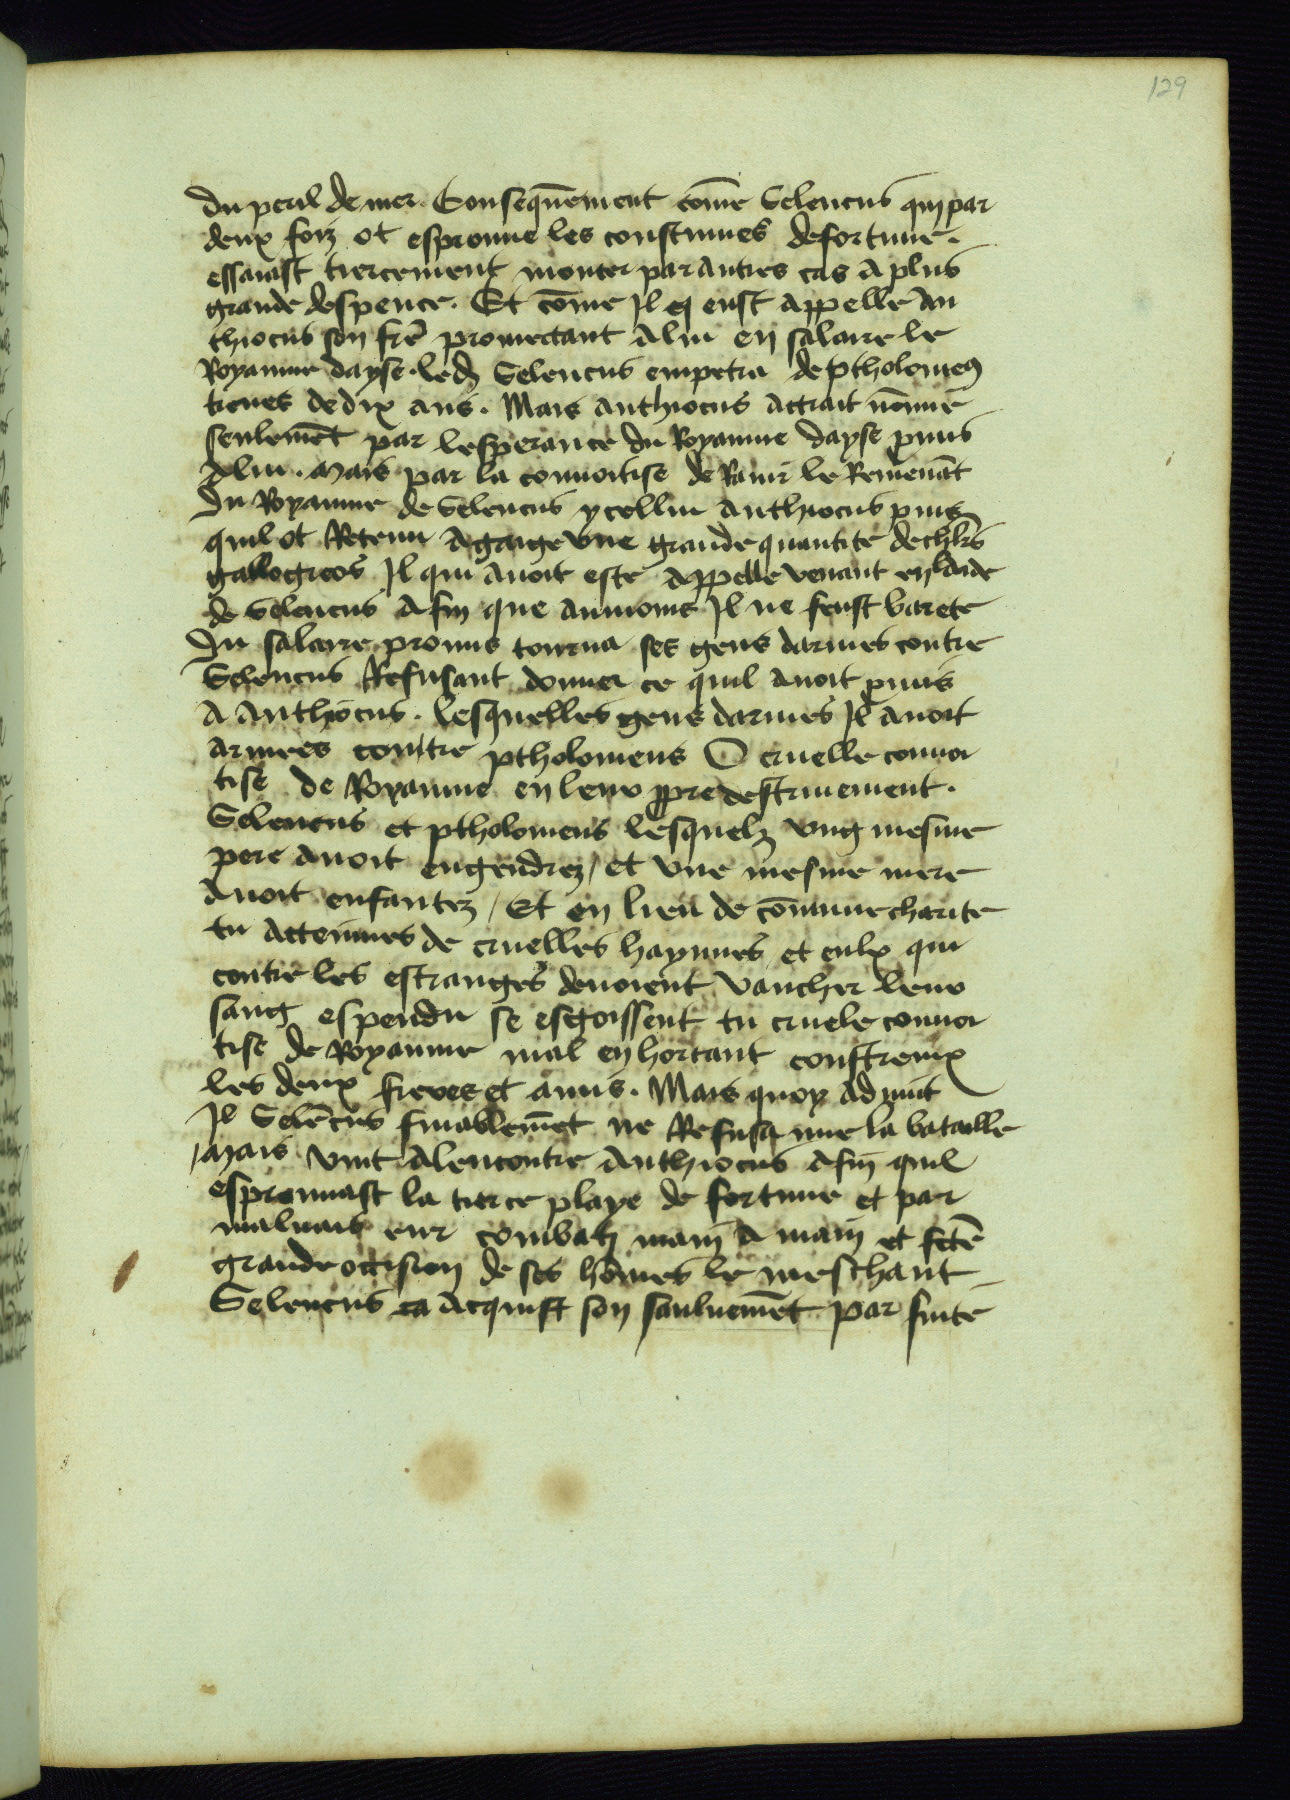 129
du peril de mer. Consequēment cōme Seleucus qui par
deux foiz ot esprouue les coustumes de fortune.
essaiast tiercement monter par autres cas a plus
grande despence. Et cōme Jl eust appelle an
thiocus son frē promectant a lui en salaire le
Royaume dayse. led Seleucus empetra de ptholomeꝰ
trieues de dix ans. Mais anthiocus actrait nōmie
seulemēt par lesperance du Royaume dayse pmis
a lui. mais par la conuoitise de Rauir le Remenāt
du Royaume de Seleucus ycellui anthiocus puis
quil ot Retenu a gaige vne grande quantite de chlrs
gallogreos Jl qui auoit este appelle venant en laide
de Seleucus afin que aumoins Jl ne feust barete
du salaire promis tourna ses gens darmes contre
Seleucus Refusant donner ce quil auoit pmis
a Anthiocus. lesquelles gens darmes Jl auoit
armees contre ptholomeus O cruelle conuoi
tise de Royaume en leur ppre destruiement.
Seleucus et ptholomeus lesquelz vng mesme
pere auoit engendrez / et vne mesme mere
auoit enfantez / Et en lieu de cōmune charite
tu actennes de cruelles haynnes et eulx qui
contre les estranges deuoient vancher leur
sang espendu se esgoissent tu cruele conuoi
tise de Royaume mal enhortant constreinx
les deux freres et amis. Mais quoy aduint
Jl Seleūcus finablemēt ne Refusa mie la bataille
/ mais vint alencontre Anthiocus afin quil
esprouuast la tierce playe de fortune et par
maluais eur combati main a main et fctē
grande occision de ses hōmes le meschant
Seleucus ca acquist son sauluemēt par fuite